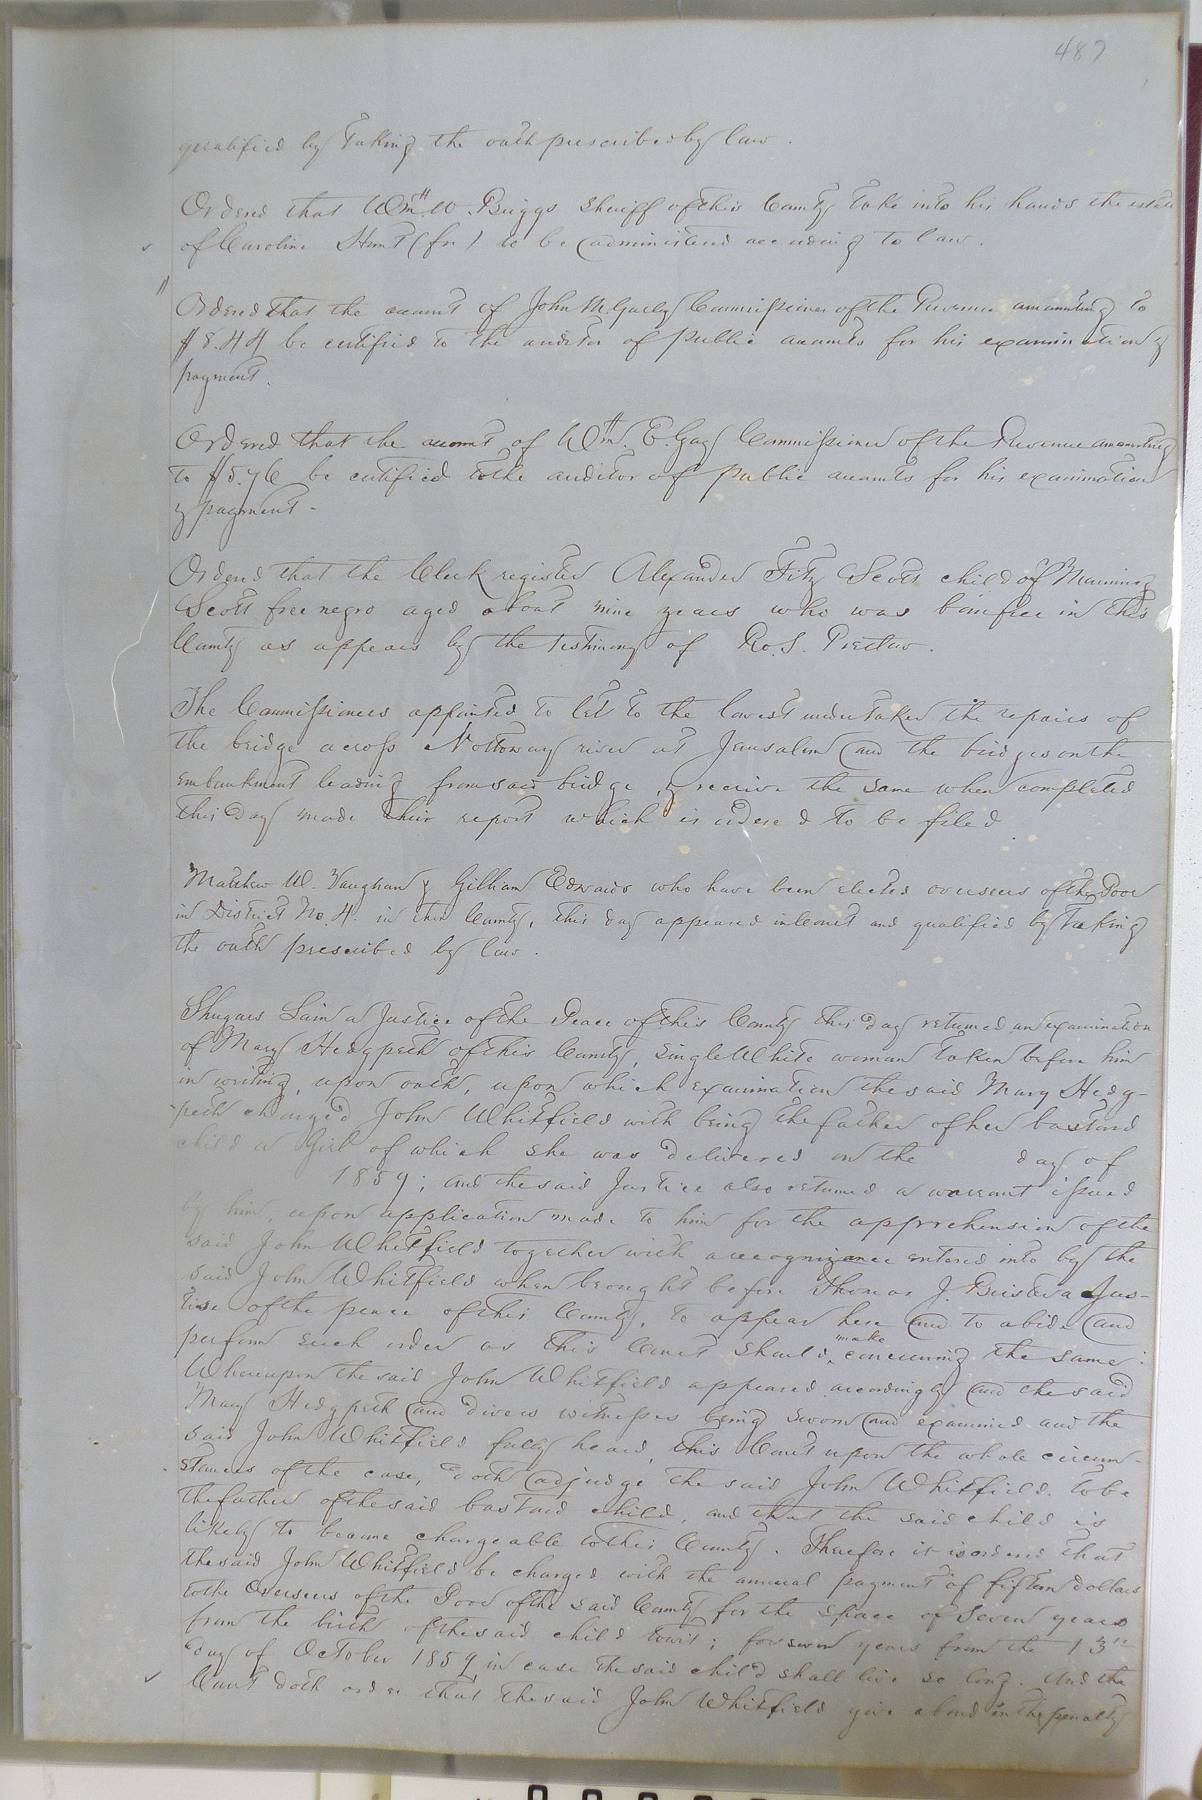 487
qualified by taking the oath prescribed by law.
Ordered that Wm. W. Briggs Sheriff of this County take into his hands the estate
of Caroline Hunt (fn) to be administered according to law.
Ordered that the account of John M. Gurley Commissioner of the Revenue amounting to
$8.44 be certified to the auditor of public accounts for his examination &
payment.
Ordered that the account of Wm. E. Gay Commissioner of the Revenue amounting
to $5.76 be certified to the auditor of public accounts for his examination
& payment -
Ordered that the Clerk register Alexander Fitz Scott child of Mourning
Scott free negro aged about nine years who was born free in this
County as appears by the testimony of Geo. S. Pretlow.
The Commissioners appointed to let to the lowest undertaker the repairs of
the bridge across Nottoway river at Jerusalem and the bridges on the
embankment leading from said bridge, & receive the same when completed
this day made their report which is ordered to be filed
Matthew W. Vaughan & Gilliam Edwards who have been elected overseers of the Poor
in District No. 4. in this County, this day appeared in Court and qualified by taking
the oath prescribed by law.
Shugars Lain a Justice of the Peace of this County this day returned an examination
of Mary Hedgpeth of this County, Single White woman taken before him
in writing, upon oath, upon which examination the said Mary Hedg-
peth charged John Whitfield with being the father of her bastard
child a Girl of which she was delivered on the day of
1859; and the said Justice also returned a warrant issued
by him, upon application made to him for the apprehension of the
said John Whitfield together with a recognizance entered into by the
said John Whitfield when brought before Thomas J. Brister a Jus-
tice of the peace of this County, to appear here and to abide and
perform such order as this Court should make concerning the same:
Whereupon the said John Whitfield appeared accordingly and the said
Mary Hedgpeth and divers witnesses being sworn and examined and the
said John Whitfield fully heard, this Court upon the whole circum-
stances of the case, doth adjudge the said John Whitfield. to be
the father of the said bastard child, and that the said child is
likely to become chargeable to this County. Therefore it is ordered that
the said John Whitfield be charged with the annual payment of fifteen dollars
to the Overseers of the Poor of the said County for the space of Seven years
from the birth of the said child towit; for seven years from the 13th
day of October 1859, in case the said child shall live so long. And the
Court doth order that the said John Whitfield give a bond in the penalty